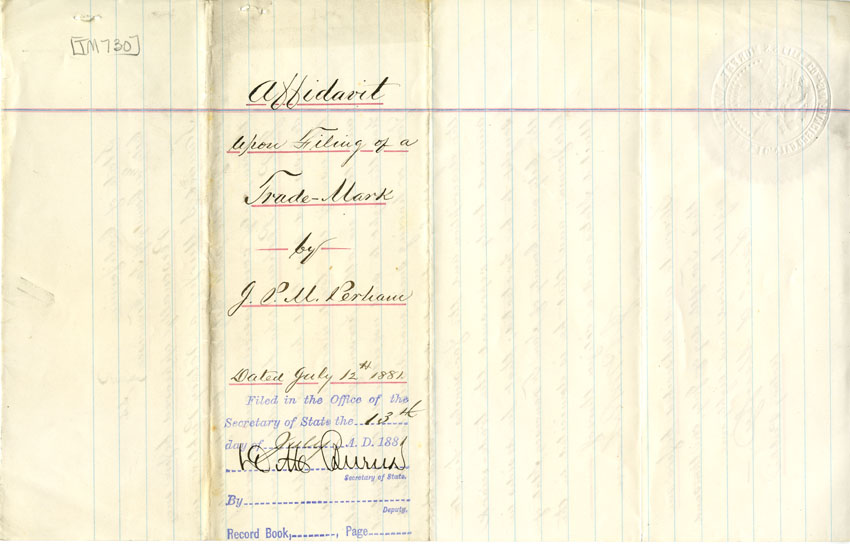 [TM730]
Affidavit
Upon Filing of a
Trade-Mark
by
J. P. M. Perham
Dated July 12th 1881.
Filed in the Office of the
Secretary of State the 13th
day of July A. D. 1881
Burns
Secretary of State.
By
Deputy.
Record Book, , Page